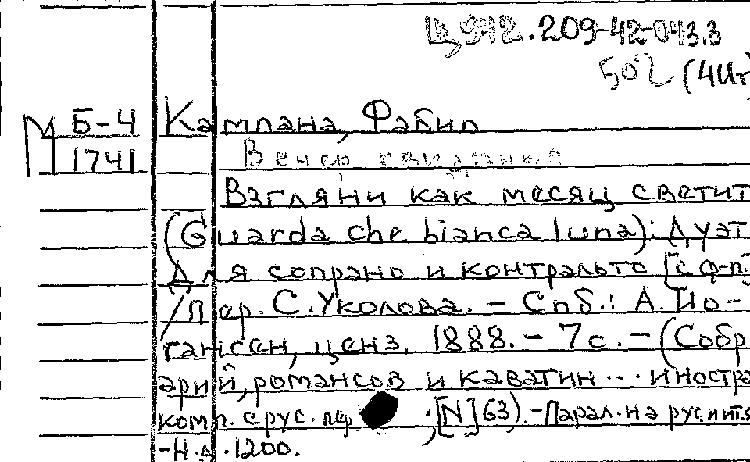 Ц942.209-42-043.3
50к (4Иг
М Б-4
1741
Кампана, Фабио
Вечер свидания
Взгляни как месяц светит
(Guarda che bianca luna): Дуэт
для сопрано и контральто [с ф-п]
/Пер. С. Уколова. – Спб.: А. Ио-
гансен, ценз. 1888. – 7с. – (Собр
арий, романсов и каватин ... иностра
комп. с рус. пер ; [N] 63). – Парал. на рус. и итя
– Н.д. 1200.